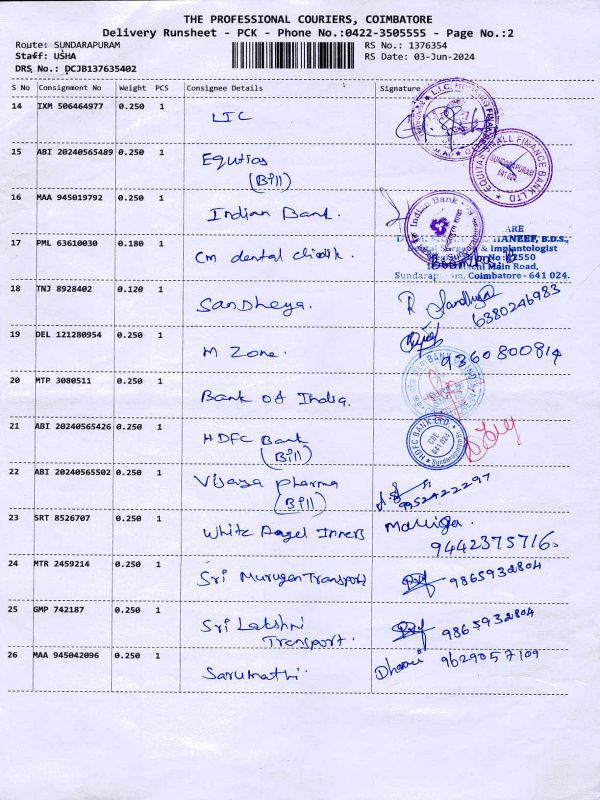 THE PROFESSIONAL COURIERS, COIMBATORE
Delivery Runsheet - PCK - Phone No.:0422-3505555 - Page No.:2
Route: SUNDARAPURAM RS No.: 1376354
Staff: USHA RS Date: 03-Jun-2024
DRS No.: DCJB137635402
S No Consignment No Weight PCS Consignee Details Signature
14 IXM 506464977 0.250 1 LIC
15 ABI 20240565489 0.250 1 Equitas
(Bill)
EQUITAS SMALL FINANCE BANK LTD
SUNDARAPURAM
641 024
16 MAA 945019792 0.250 1 Indian Bank.
Indian Bank
17 PML 63610030 0.180 1 Cm dental clinik.
HANEEF, B.D.S.,
Dental Surgeon & Implantologist
Main Road,
Sundarapuram, Coimbatore - 641 024.
18 TNJ 8928402 0.120 1 Sandheya.
6380246983
19 DEL 121280954 0.250 1 M Zone.
9360800814
20 MTP 3080511 0.250 1 Bank of India.
21 ABI 20240565426 0.250 1 HDFC Bank
(Bill)
HDFC BANK LTD.
CBE
641 024
22 ABI 20240565502 0.250 1 Vijaya Pharma
(Bill)
9952422297
23 SRT 8526707 0.250 1 White Angel Inners
9442375716.
24 MTR 2459214 0.250 1 Sri Murugan Transport 9865932804
25 GMP 742187 0.250 1 Sri Lakshmi
Transport. 9865932804
26 MAA 945042096 0.250 1 Sarumathi. Dharani 9629057109